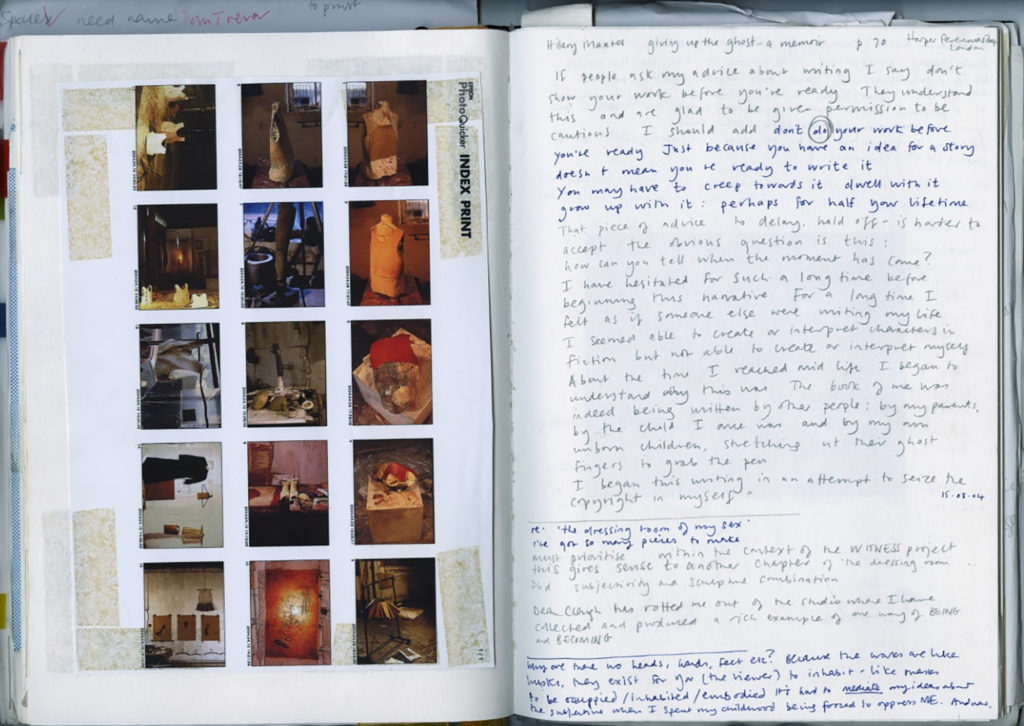 Spaces need name Tom Trevor
to print
EPSON
PhotoQuicker INDEX PRINT
1/1
Hilary Mantel giving up the ghost - a memoir p 70 Harper Perennial
London
If people ask my advice about writing I say don't
show your work before you're ready They understand
this and are glad to be given permission to be
cautious I should add don't do your work before
you're ready Just because you have an idea for a story
doesn't mean you're ready to write it
You may have to creep towards it dwell with it
grow up with it: perhaps for half your lifetime
That piece of advice to delay, hold off - is harder to
accept the obvious question is this:
how can you tell when the moment has come?
I have hesitated for such a long time before
beginning this narrative For a long time I
felt as if someone else were writing my life
I seemed able to create or interpret characters in
fiction but not able to create or interpret myself
About the time I reached mid life I began to
understand why this was The book of me was
indeed being written by other people: by my parents,
by the child I once was and by my own
unborn children, stretching out their ghost
fingers to grab the pen
I began this writing in an attempt to seize the
copyright in myself"
15-03-04
re. 'the dressing room of my sex'
I've got so many pieces to make
must prioritise within the context of the WITNESS project
this gives sense to another chapter of 'the dressing room
Phd subjectivity and sculpture combination
Dean Clough has rotted me out of the studio where I have
collected and produced a rich example of one way of BEING
and BECOMING
Why are there no heads, hands, feet etc? Because the works are like
husks, they exist for you (the viewer) to inhabit - like masks
to be occupied/inhabited/embodied It's hard to mediate my ideas about
the subjective when I spent my childhood being forced to oppress ME.